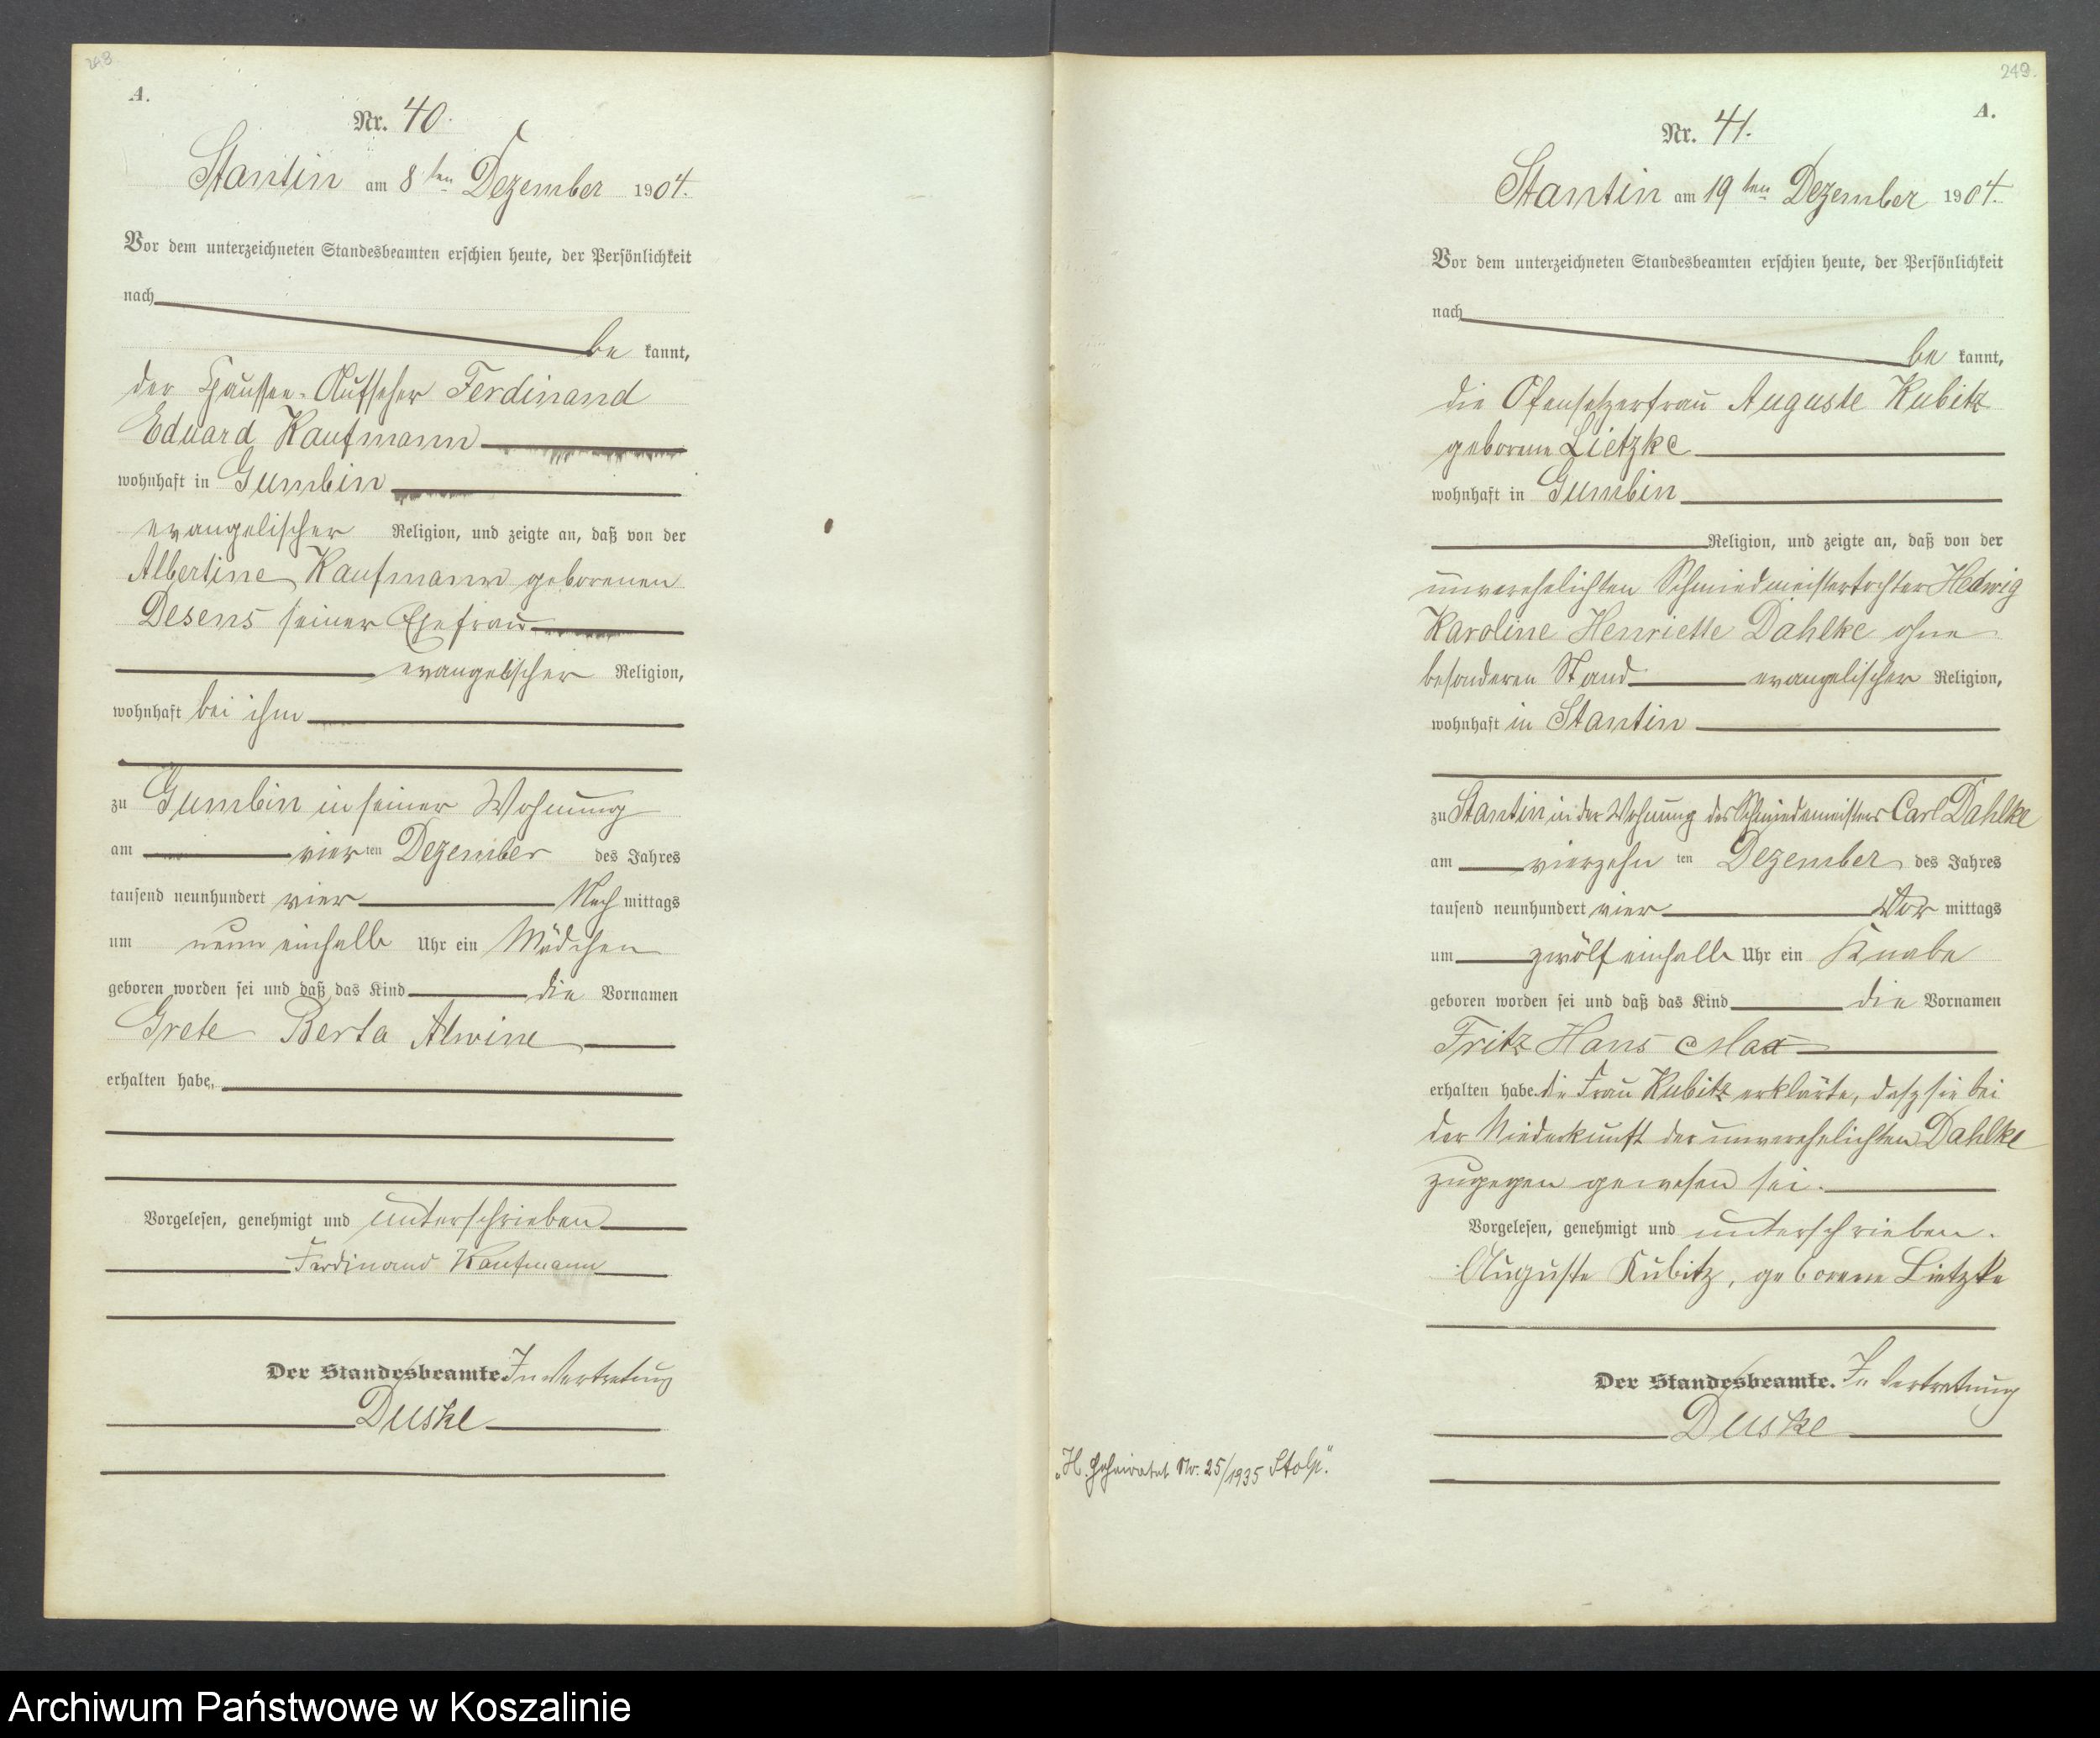 248
A.
Nr. 40.
Stantin am 8ten Dezember 1904.
Vor dem unterzeichneten Standesbeamten erschien heute, der Persönlichkeit
nach
be kannt,
der Chaussee-Aufseher Ferdinand
Eduard Kaufmann
wohnhaft in Gumbin
evangelischer Religion, und zeigte an, daß von der
Albertine Kaufmann geborenen
Desens seiner Ehefrau
evangelischer Religion,
wohnhaft bei ihm
zu Gumbin in seiner Wohnung
am vier ten Dezember des Jahres
tausend neunhundert vier Nach mittags
um neun einhalb Uhr ein Mädchen
geboren worden sei und daß das Kind die Vornamen
Grete Berta Alwine
erhalten habe.
Vorgelesen, genehmigt und unterschrieben
Ferdinand Kaufmann
Der Standesbeamte. In Vertretung
Duske
249.
A.
Nr. 41.
Stantin am 19ten Dezember 1904.
Vor dem unterzeichneten Standesbeamten erschien heute, der Persönlichkeit
nach
be kannt,
die Ofensetzerfrau Auguste Kubitz
geborene Lietzke
wohnhaft in Gumbin
Religion, und zeigte an, daß von der
unverehelichten Schmiedmeistertochter Hedwig
Karoline Henriette Dahlke ohne
besonderen Stand evangelischer Religion,
wohnhaft in Stantin
zu Stantin in der Wohnung des Schmiedemeisters Carl Dahlke
am vierzehn ten Dezember des Jahres
tausend neunhundert vier Vor mittags
um zwölf einhalb Uhr ein Knabe
geboren worden sei und daß das Kind die Vornamen
Fritz Hans Max
erhalten habe. die Frau Kubitz erklärte, daß sie bei
der Niederkunft der unverehelichten Dahlke
zugegen gewesen sei.
Vorgelesen, genehmigt und unterschrieben.
Auguste Kubitz, geborene Lietzke
Der Standesbeamte. In Vertretung
Duske
„H. Geheiratet Nr. 25/1935 Stolp."
Archiwum Państwowe w Koszalinie